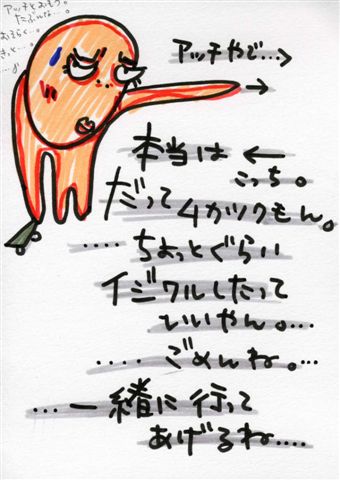 アッチとおもう。
たぶんな…。
おそらく…。
きっと…。
アッチやで…→
→
本当は ←
こっち。
だって ムカツクもん。
….. ちょっとぐらい
イジワルしたって
いいやん。…
….. ごめんね。…
… 一緒に行って
あげるね….